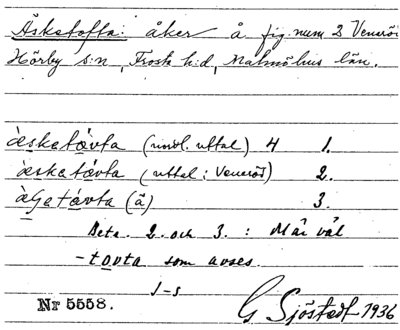 Äsketofta: åker å fig. num 2 Veneröd
Hörby s:n, Frosta h:d, Malmöhus län.
àesketåvta (vanl. uttal) 4 1.
àesketåvta (uttal i Veneröd) 2.
(ä) 3.
Beta. 2. och 3. : Det är väl
-tovta som avses.
J-s
Nr 5558. G. Sjöstedt 1936